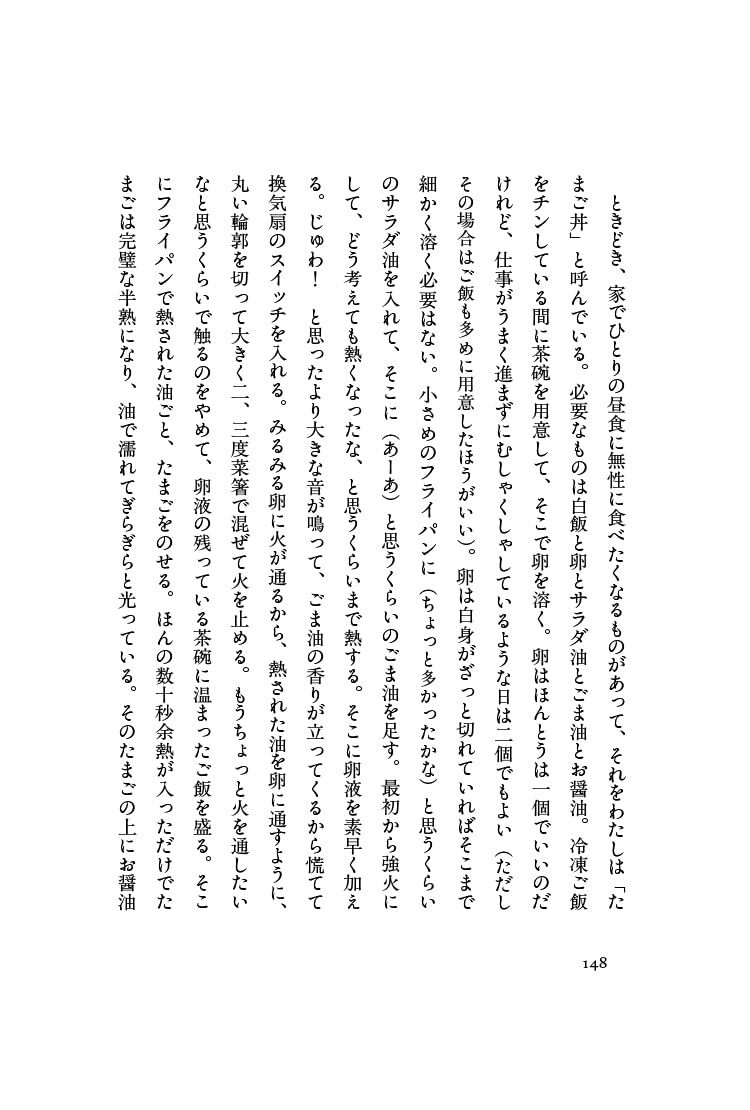 ときどき、家でひとりの昼食に無性に食べたくなるものがあって、それをわたしは「た
まご丼」と呼んでいる。必要なものは白飯と卵とサラダ油とごま油とお醤油。冷凍ご飯
をチンしている間に茶碗を用意して、そこで卵を溶く。卵はほんとうは一個でいいのだ
けれど、仕事がうまく進まずにむしゃくしゃしているような日は二個でもよい（ただし
その場合はご飯も多めに用意したほうがいい）。卵は白身がざっと切れていればそこまで
細かく溶く必要はない。小さめのフライパンに（ちょっと多かったかな）と思うくらい
のサラダ油を入れて、そこに（あーあ）と思うくらいのごま油を足す。最初から強火に
して、どう考えても熱くなったな、と思うくらいまで熱する。そこに卵液を素早く加え
る。じゅわ！　と思ったより大きな音が鳴って、ごま油の香りが立ってくるから慌てて
換気扇のスイッチを入れる。みるみる卵に火が通るから、熱された油を卵に通すように、
丸い輪郭を切って大きく二、三度菜箸で混ぜて火を止める。もうちょっと火を通したい
なと思うくらいで触るのをやめて、卵液の残っている茶碗に温まったご飯を盛る。そこ
にフライパンで熱された油ごと、たまごをのせる。ほんの数十秒余熱が入っただけでた
まごは完璧な半熟になり、油で濡れてぎらぎらと光っている。そのたまごの上にお醤油
148